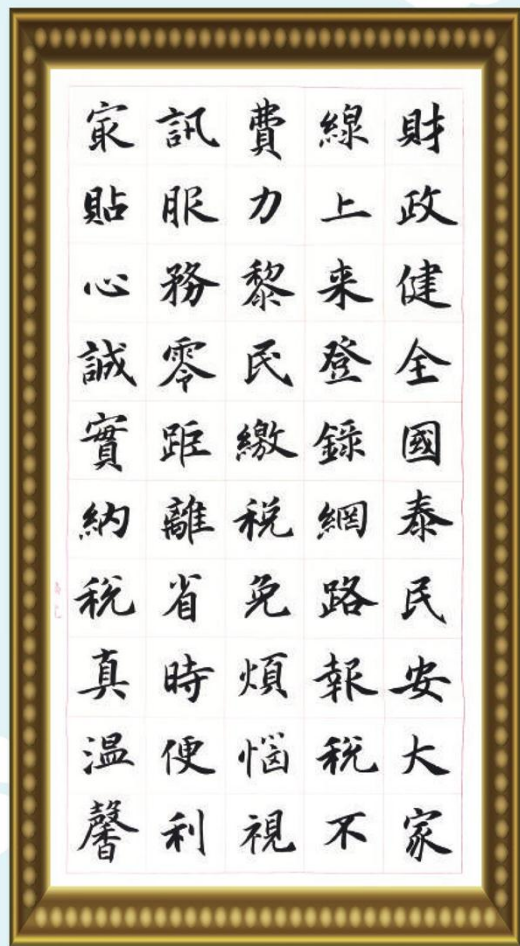 財政健全國泰民安大家
線上来登錄網路報稅不
費力黎民繳稅免煩惱視
訊服務零距離省時便利
㝡貼心誠實納稅真温馨